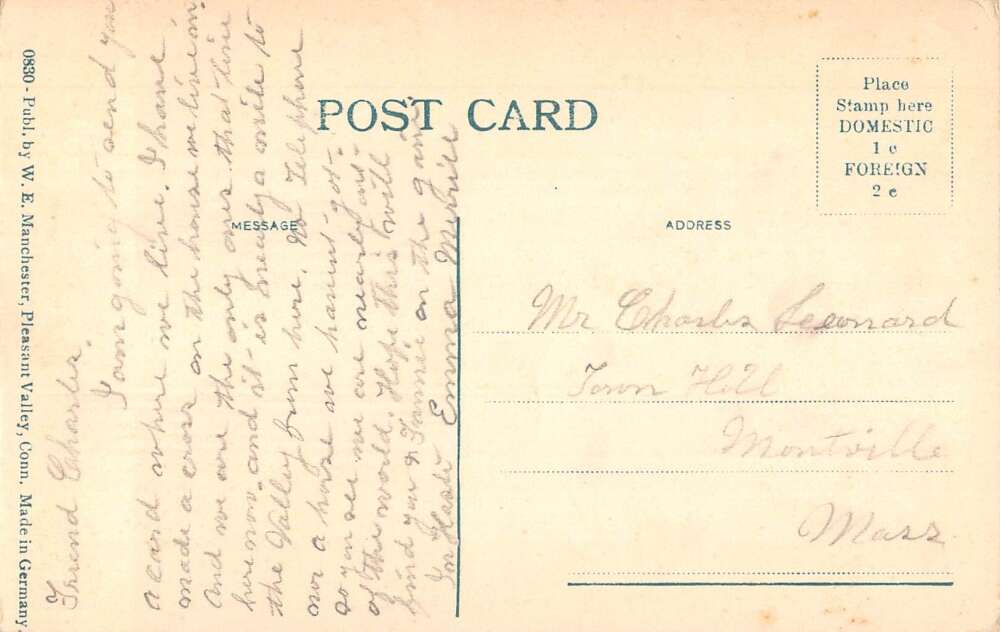 POST CARD
Place
Stamp here
DOMESTIC
1 c
FOREIGN
2 c
MESSAGE
ADDRESS
0830 - Publ. by W. E. Manchester, Pleasant Valley, Conn. Made in Germany.
Friend Charles.
I am going to send you
a card where we live. I have
made a cross on the house we live in.
And we are the only ones that live
here now. and it is nearly a mile to
the Valley from here. no Telephone
nor a horse we haven't got.
so you see we are nearly out
of the world. Hope this will
find you & on the gain
In Haste Emma Merrill
Mr Charles Leonard
Town Hill
Montville
Mass